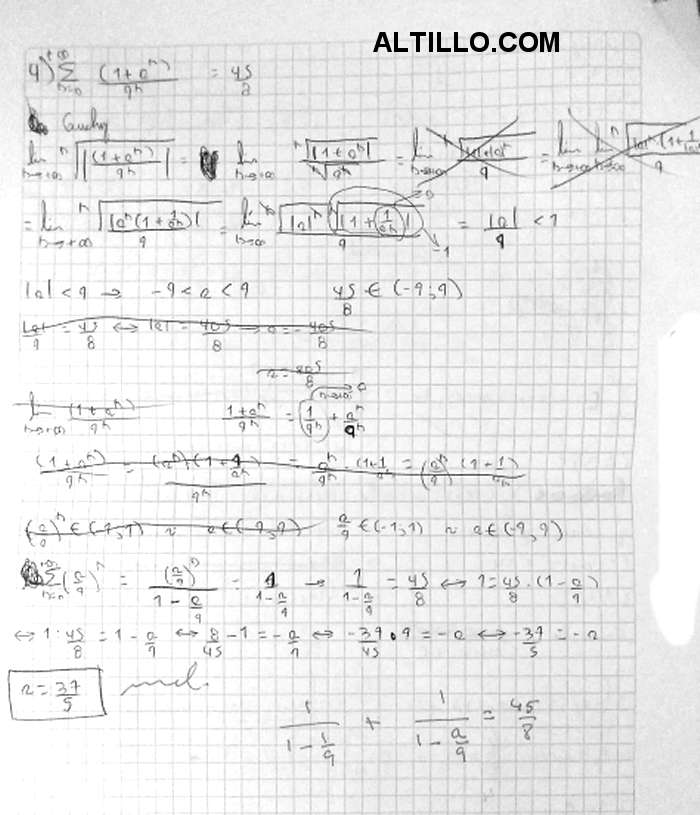 ALTILLO.COM
4) +∞ Σ n=0 (1+a^n)/9^n = 45/8
Cauchy
lim n→+∞ ^n√|(1+a^n)/9^n| = lim n→+∞ ^n√|1+a^n| / ^n√9^n = lim n→+∞
= lim n→+∞ ^n√|a^n(1+1/a^n)| / 9 = lim n→∞ ^n√|a|^n ^n√|1+1/a^n| / 9 = |a|/9 < 1
→0
→1
|a| < 9 → -9 < a < 9 45/8 ∈ (-9;9)
|a|/9 = 45/8 ↔ |a| = 405/8 → a = - 405/8
a = 405/8
lim n→+∞ (1+a^n)/9^n (1+a^n)/9^n = 1/9^n + a^n/9^n
n→+∞ 0
(1+a^n)/9^n =
a/9 ∈ (-1;1) ∼ a ∈ (-9,9)
+∞ Σ n=0 (a/9)^n = (a/9)^0 / (1 - a/9) = 1/(1 - a/9) → 1/(1 - a/9) = 45/8 ↔ 1 = 45/8 · (1 - a/9)
↔ 1 : 45/8 = 1 - a/9 ↔ 8/45 - 1 = -a/9 ↔ -37/45 · 9 = -a ↔ -37/5 = -a
a = 37/5
1/(1 - 1/9) + 1/(1 - a/9) = 45/8